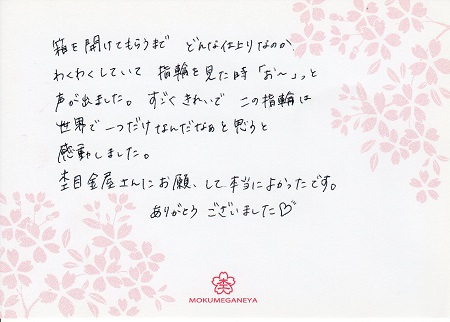 箱を開けてもらうまで どんな仕上りなのか
わくわくしていて 指輪を見た時「お〜」っと
声が出ました。 すごくきれいで この指輪は
世界で一つだけなんだなぁと思うと
感動しました。
杢目金屋さんにお願いして本当によかったです。
ありがとうございました♡
杢
MOKUMEGANEYA